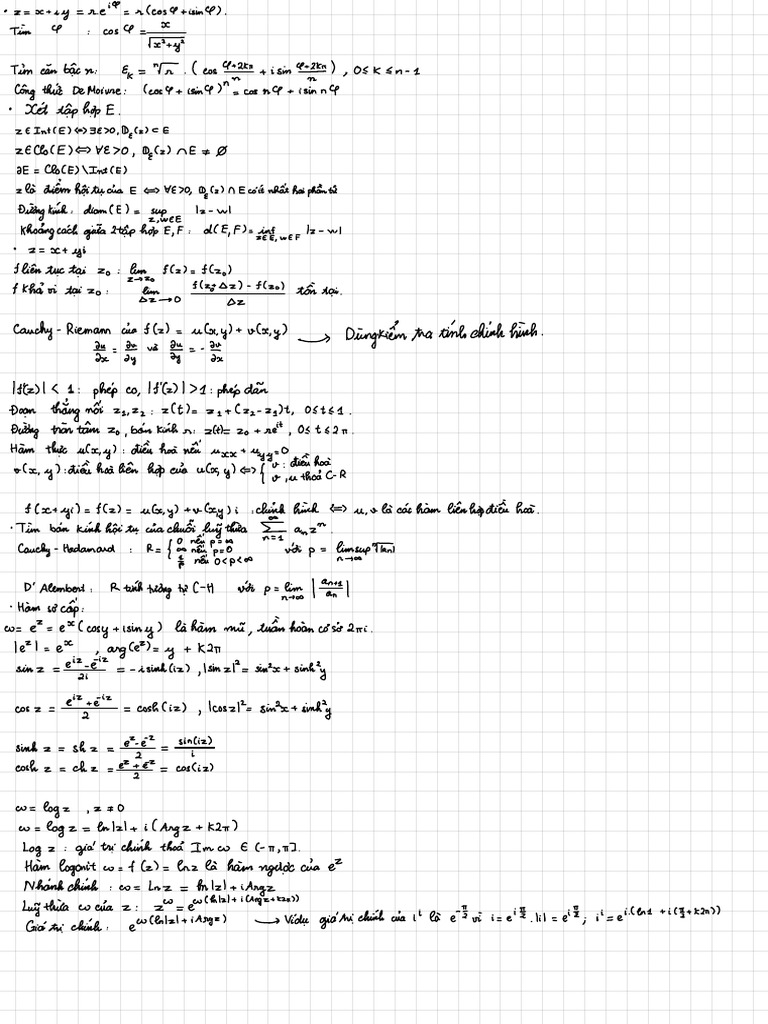 • z = x + iy = re^{iφ} = r(cosφ + isinφ).
Tìm φ : cosφ = x/√(x²+y²)
Tìm căn bậc n: ε_k = ⁿ√r . (cos (φ+2kπ)/n + i sin (φ+2kπ)/n) , 0 ≤ k ≤ n-1
Công thức De Moivre: (cosφ + isinφ)^n = cos nφ + isin nφ
• Xét tập hợp E.
z ∈ Int(E) ⇔ ∃ε>0, D_ε(z) ⊂ E
z ∈ Clo(E) ⇔ ∀ε>0, D_ε(z) ∩ E ≠ ∅
∂E = Clo(E) \ Int(E)
z là điểm hội tụ của E ⇔ ∀ε>0, D_ε(z) ∩ E có ít nhất hai phần tử
Đường kính: diam(E) = sup_{z,w∈E} |z - w|
Khoảng cách giữa 2 tập hợp E, F: d(E,F) = inf_{z∈E, w∈F} |z - w|
• z = x + yi
f liên tục tại z₀ : lim_{z→z₀} f(z) = f(z₀)
f khả vi tại z₀ : lim_{Δz→0} (f(z₀+Δz) - f(z₀))/Δz tồn tại.
Cauchy - Riemann của f(z) = u(x,y) + v(x,y) → Dùng kiểm tra tính chỉnh hình.
∂u/∂x = ∂v/∂y và ∂u/∂y = - ∂v/∂x
|f'(z)| < 1 : phép co, |f'(z)| > 1 : phép dãn
Đoạn thẳng nối z₁, z₂ : z(t) = z₁ + (z₂ - z₁)t, 0 ≤ t ≤ 1.
Đường tròn tâm z₀, bán kính r: z(t) = z₀ + re^{it}, 0 ≤ t ≤ 2π.
Hàm thực u(x,y) : điều hoà nếu u_xx + u_yy = 0
v(x,y) : điều hoà liên hợp của u(x,y) ⇔ { v : điều hoà
v, u thoả C-R
f(x+yi) = f(z) = u(x,y) + v(x,y)i : chỉnh hình ⇔ u, v là các hàm liên hợp điều hoà.
• Tìm bán kính hội tụ của chuỗi luỹ thừa ∑_{n=1}^{∞} a_n z^n.
Cauchy - Hadamard : R = { 0 nếu p = ∞
∞ nếu p = 0 với p = limsup_{n→∞} ⁿ√|a_n|
1/p nếu 0 < p < ∞
D'Alembert: R tính tương tự C-H với p = lim_{n→∞} |a_{n+1}/a_n|
• Hàm sơ cấp:
w = e^z = e^x (cosy + isin y) là hàm mũ, tuần hoàn cơ sở 2πi.
|e^z| = e^x , arg(e^z) = y + k2π
sin z = (e^{iz} - e^{-iz})/2i = -isinh(iz) , |sin z|² = sin²x + sinh²y
cos z = (e^{iz} + e^{-iz})/2 = cosh(iz) , |cosz|² = sin²x + sinh²y
sinh z = sh z = (e^z - e^{-z})/2 = sin(iz)/i
cosh z = ch z = (e^z + e^{-z})/2 = cos(iz)
w = log z , z ≠ 0
w = log z = ln|z| + i(Arg z + k2π)
Log z : giá trị chính thoả Im w ∈ (-π, π].
Hàm logarit w = f(z) = ln z là hàm ngược của e^z
Nhánh chính : w = Ln z = ln|z| + iArgz
Luỹ thừa w của z: z^w = e^{w(ln|z| + i(Argz + k2π))}
Giá trị chính: e^{w(ln|z| + iArgz)} → Ví dụ giá trị chính của i^i là e^{-π/2} vì i = e^{iπ/2}.|i| = e^{iπ/2}; i^i = e^{i.(ln1 + i(π/2 + k2π))}